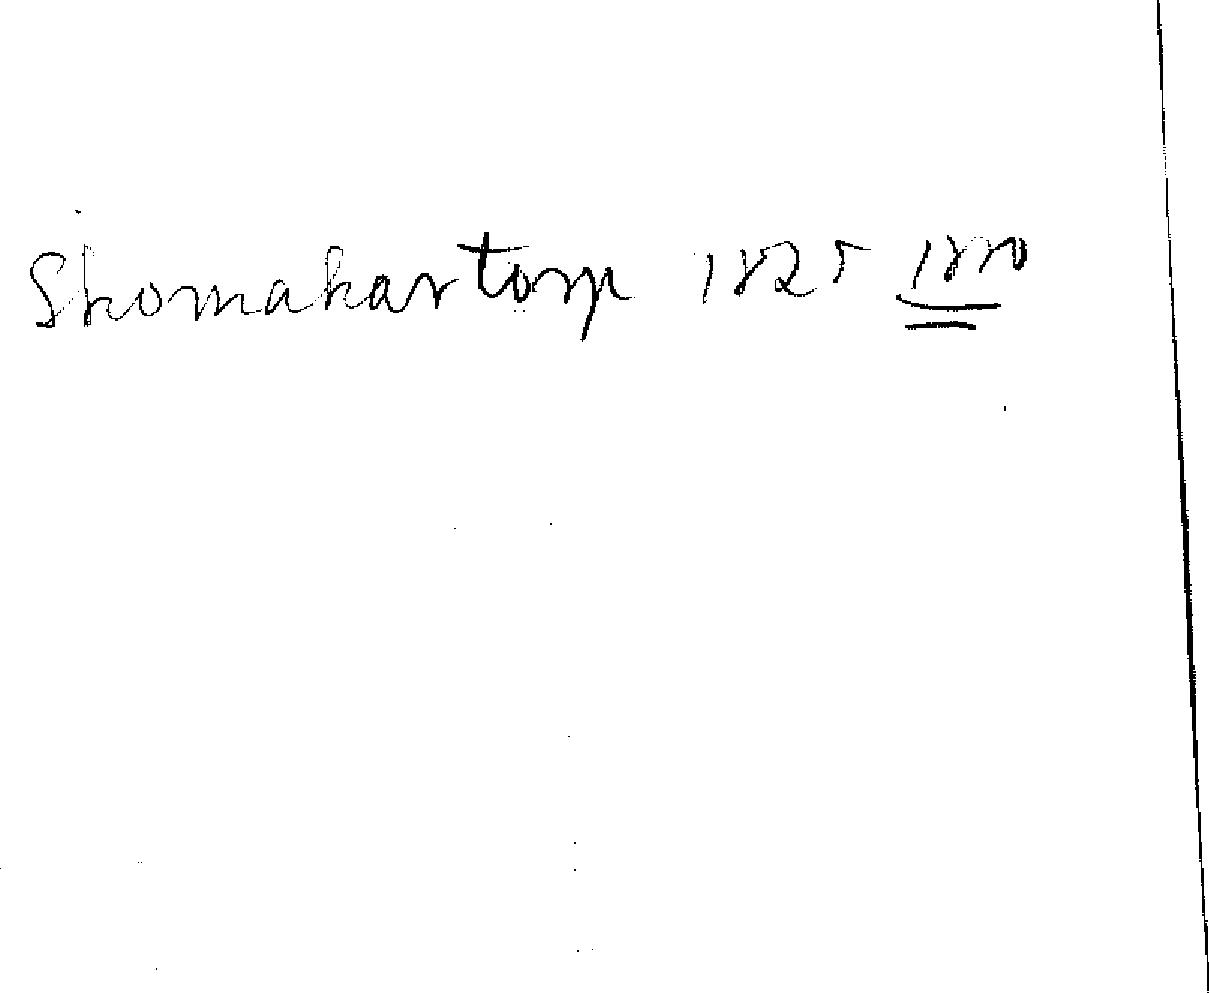 Skomakartorp 1825 1880